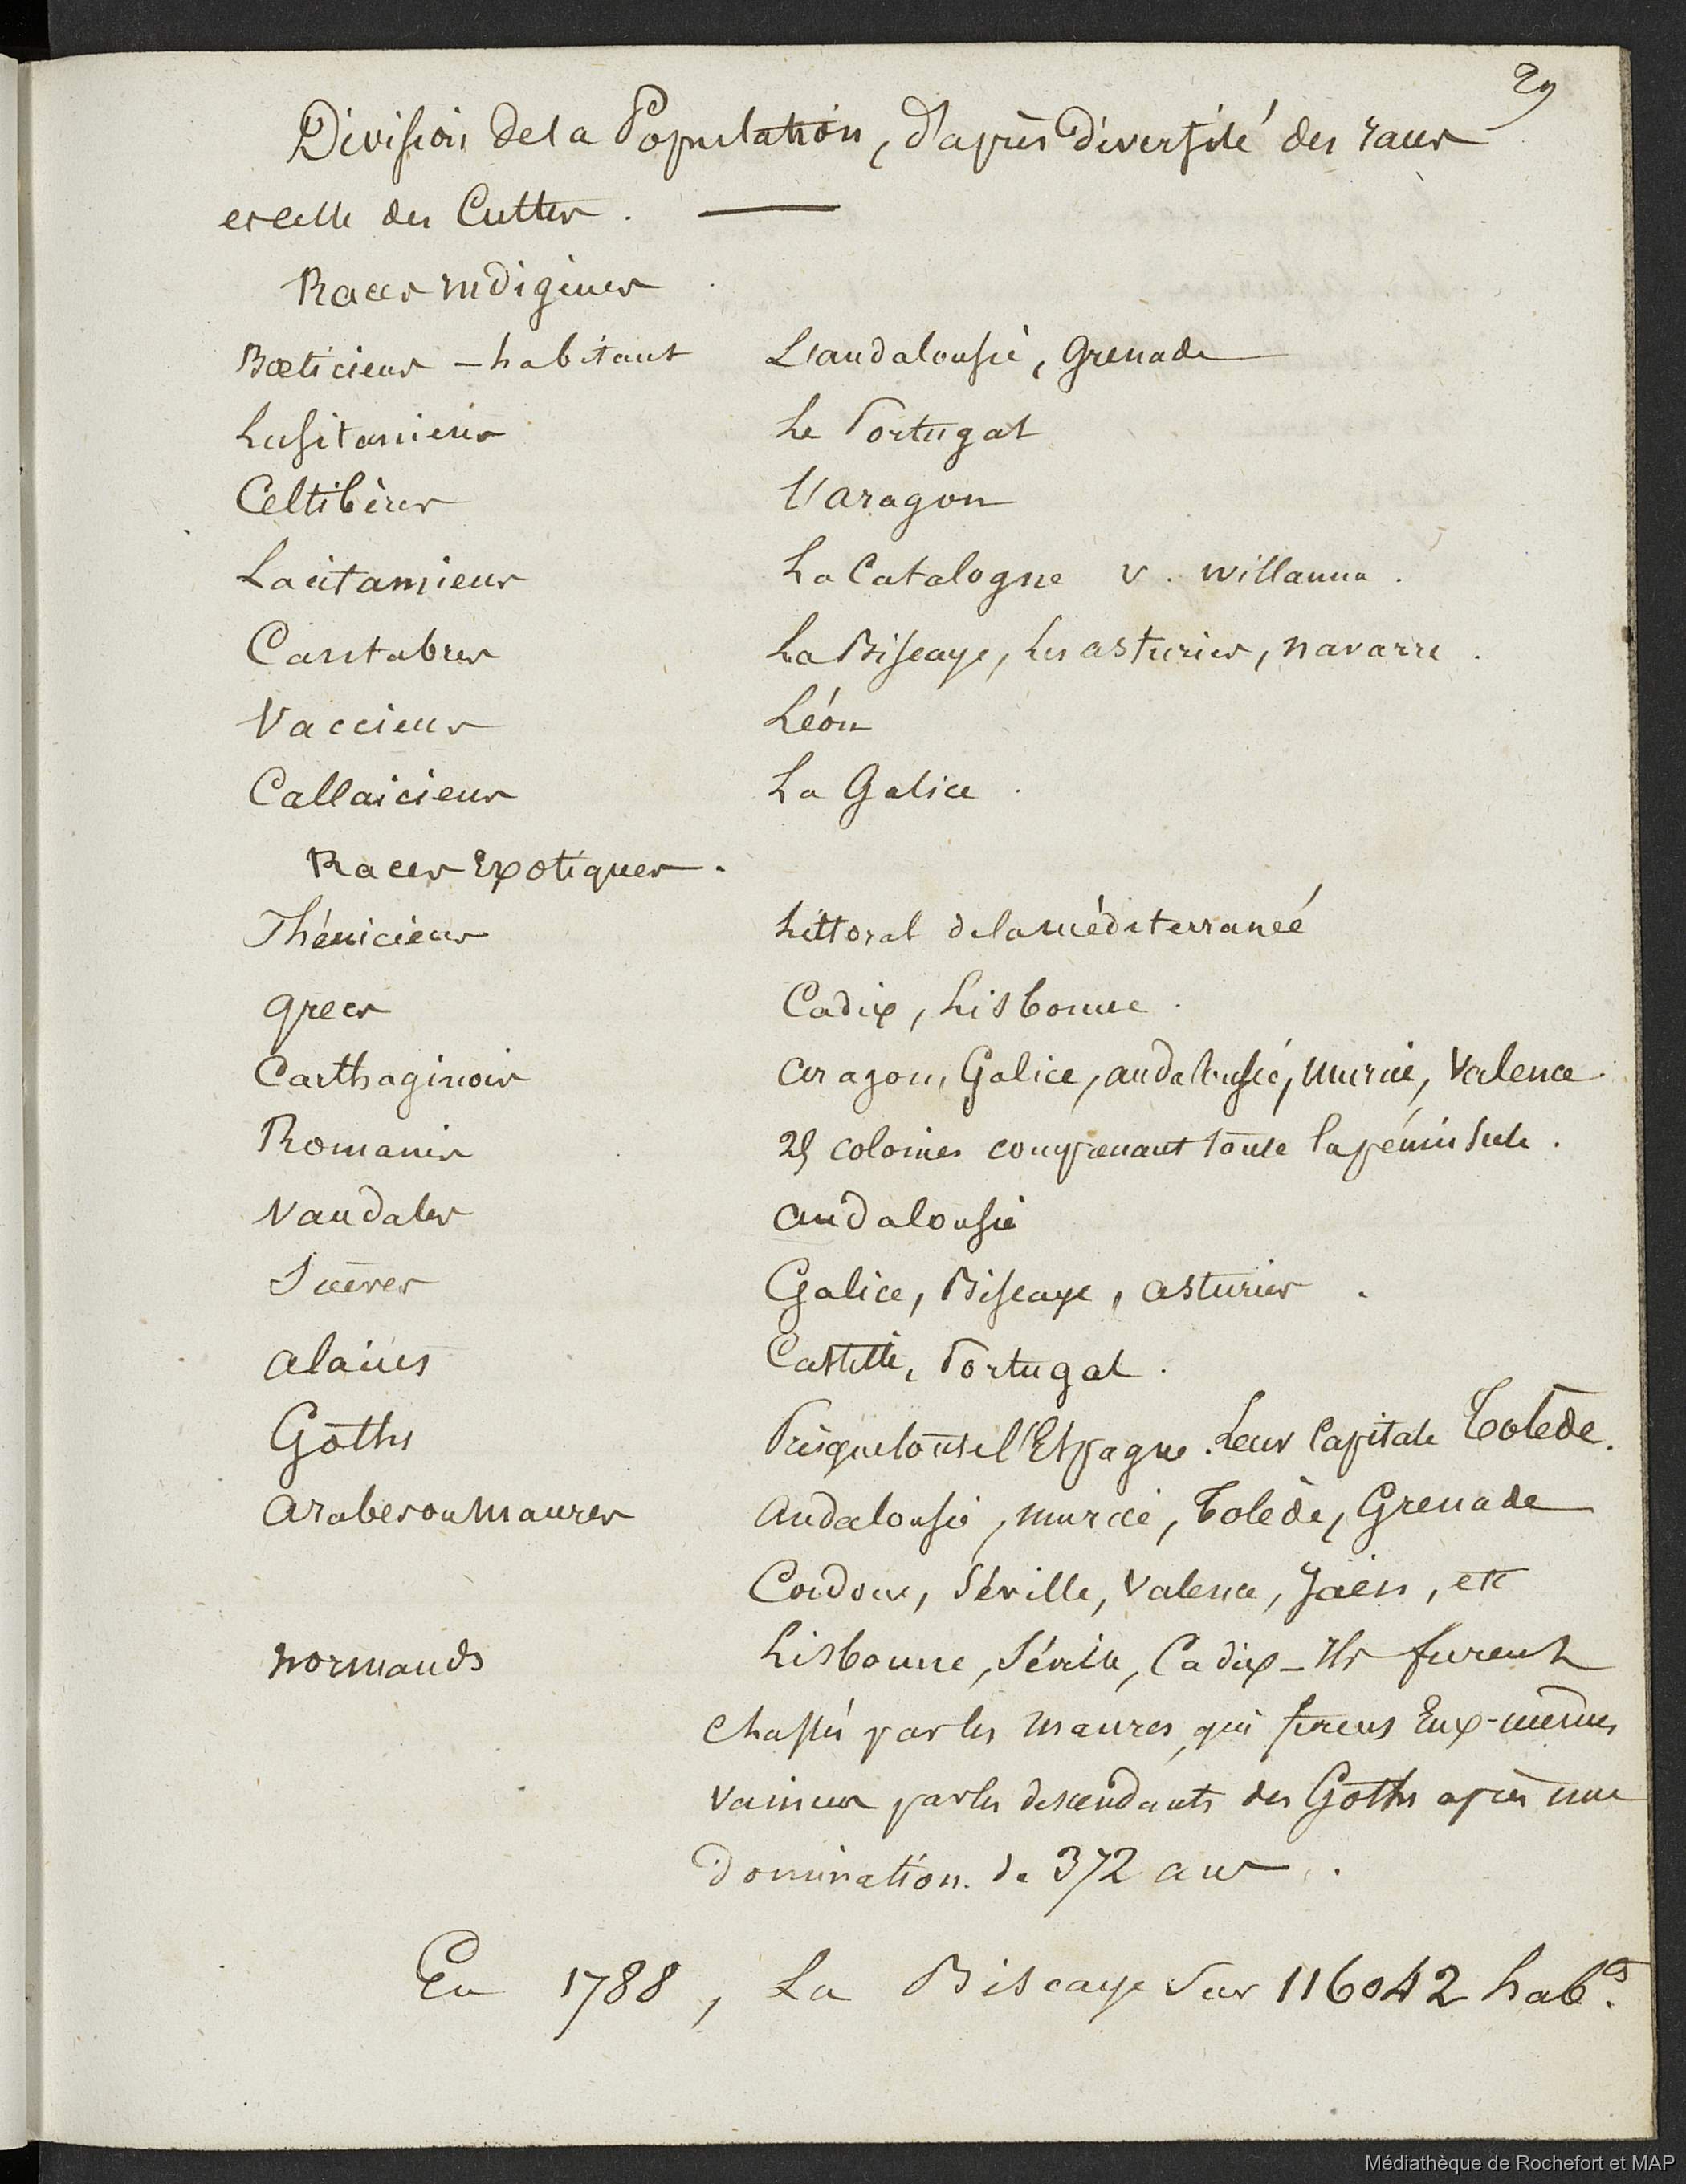 29
Division de la Population, d'après diversité des races
et celle des Cultes.
Races indigènes
Bœticiens - habitant L'andalousie, Grenade
Lusitaniens Le Portugal
Celtibères l'aragon
Lacitamiens La Catalogne v. willaume.
Cantabres La Biscaye, les asturies, navarre.
Vacciens Léon
Callaiciens La Galice.
Races Exotiques.
Phéniciens Littoral de la méditerranée
grecs Cadix, Lisbonne.
Carthaginois aragon, Galice, andalousie, murcie, Valence.
Romains 25 colonies comprenant toute la péninsule.
Vandales andalousie
Suèves Galice, Biscaye, asturies.
alains Castille, Portugal.
Goths Presque toute l'Espagne. Leur Capitale Tolède.
arabes ou maures andalousie, murcie, Tolède, Grenade
Cordoue, Séville, Valence, Jaën, etc
normands Lisbonne, Séville, Cadix - Ils furent
chassés par les maures, qui furent Eux-mêmes
vaincus par les descendants des Goths après une
domination de 372 ans.
En 1788, La Biscaye sur 116042 habs.
Médiathèque de Rochefort et MAP